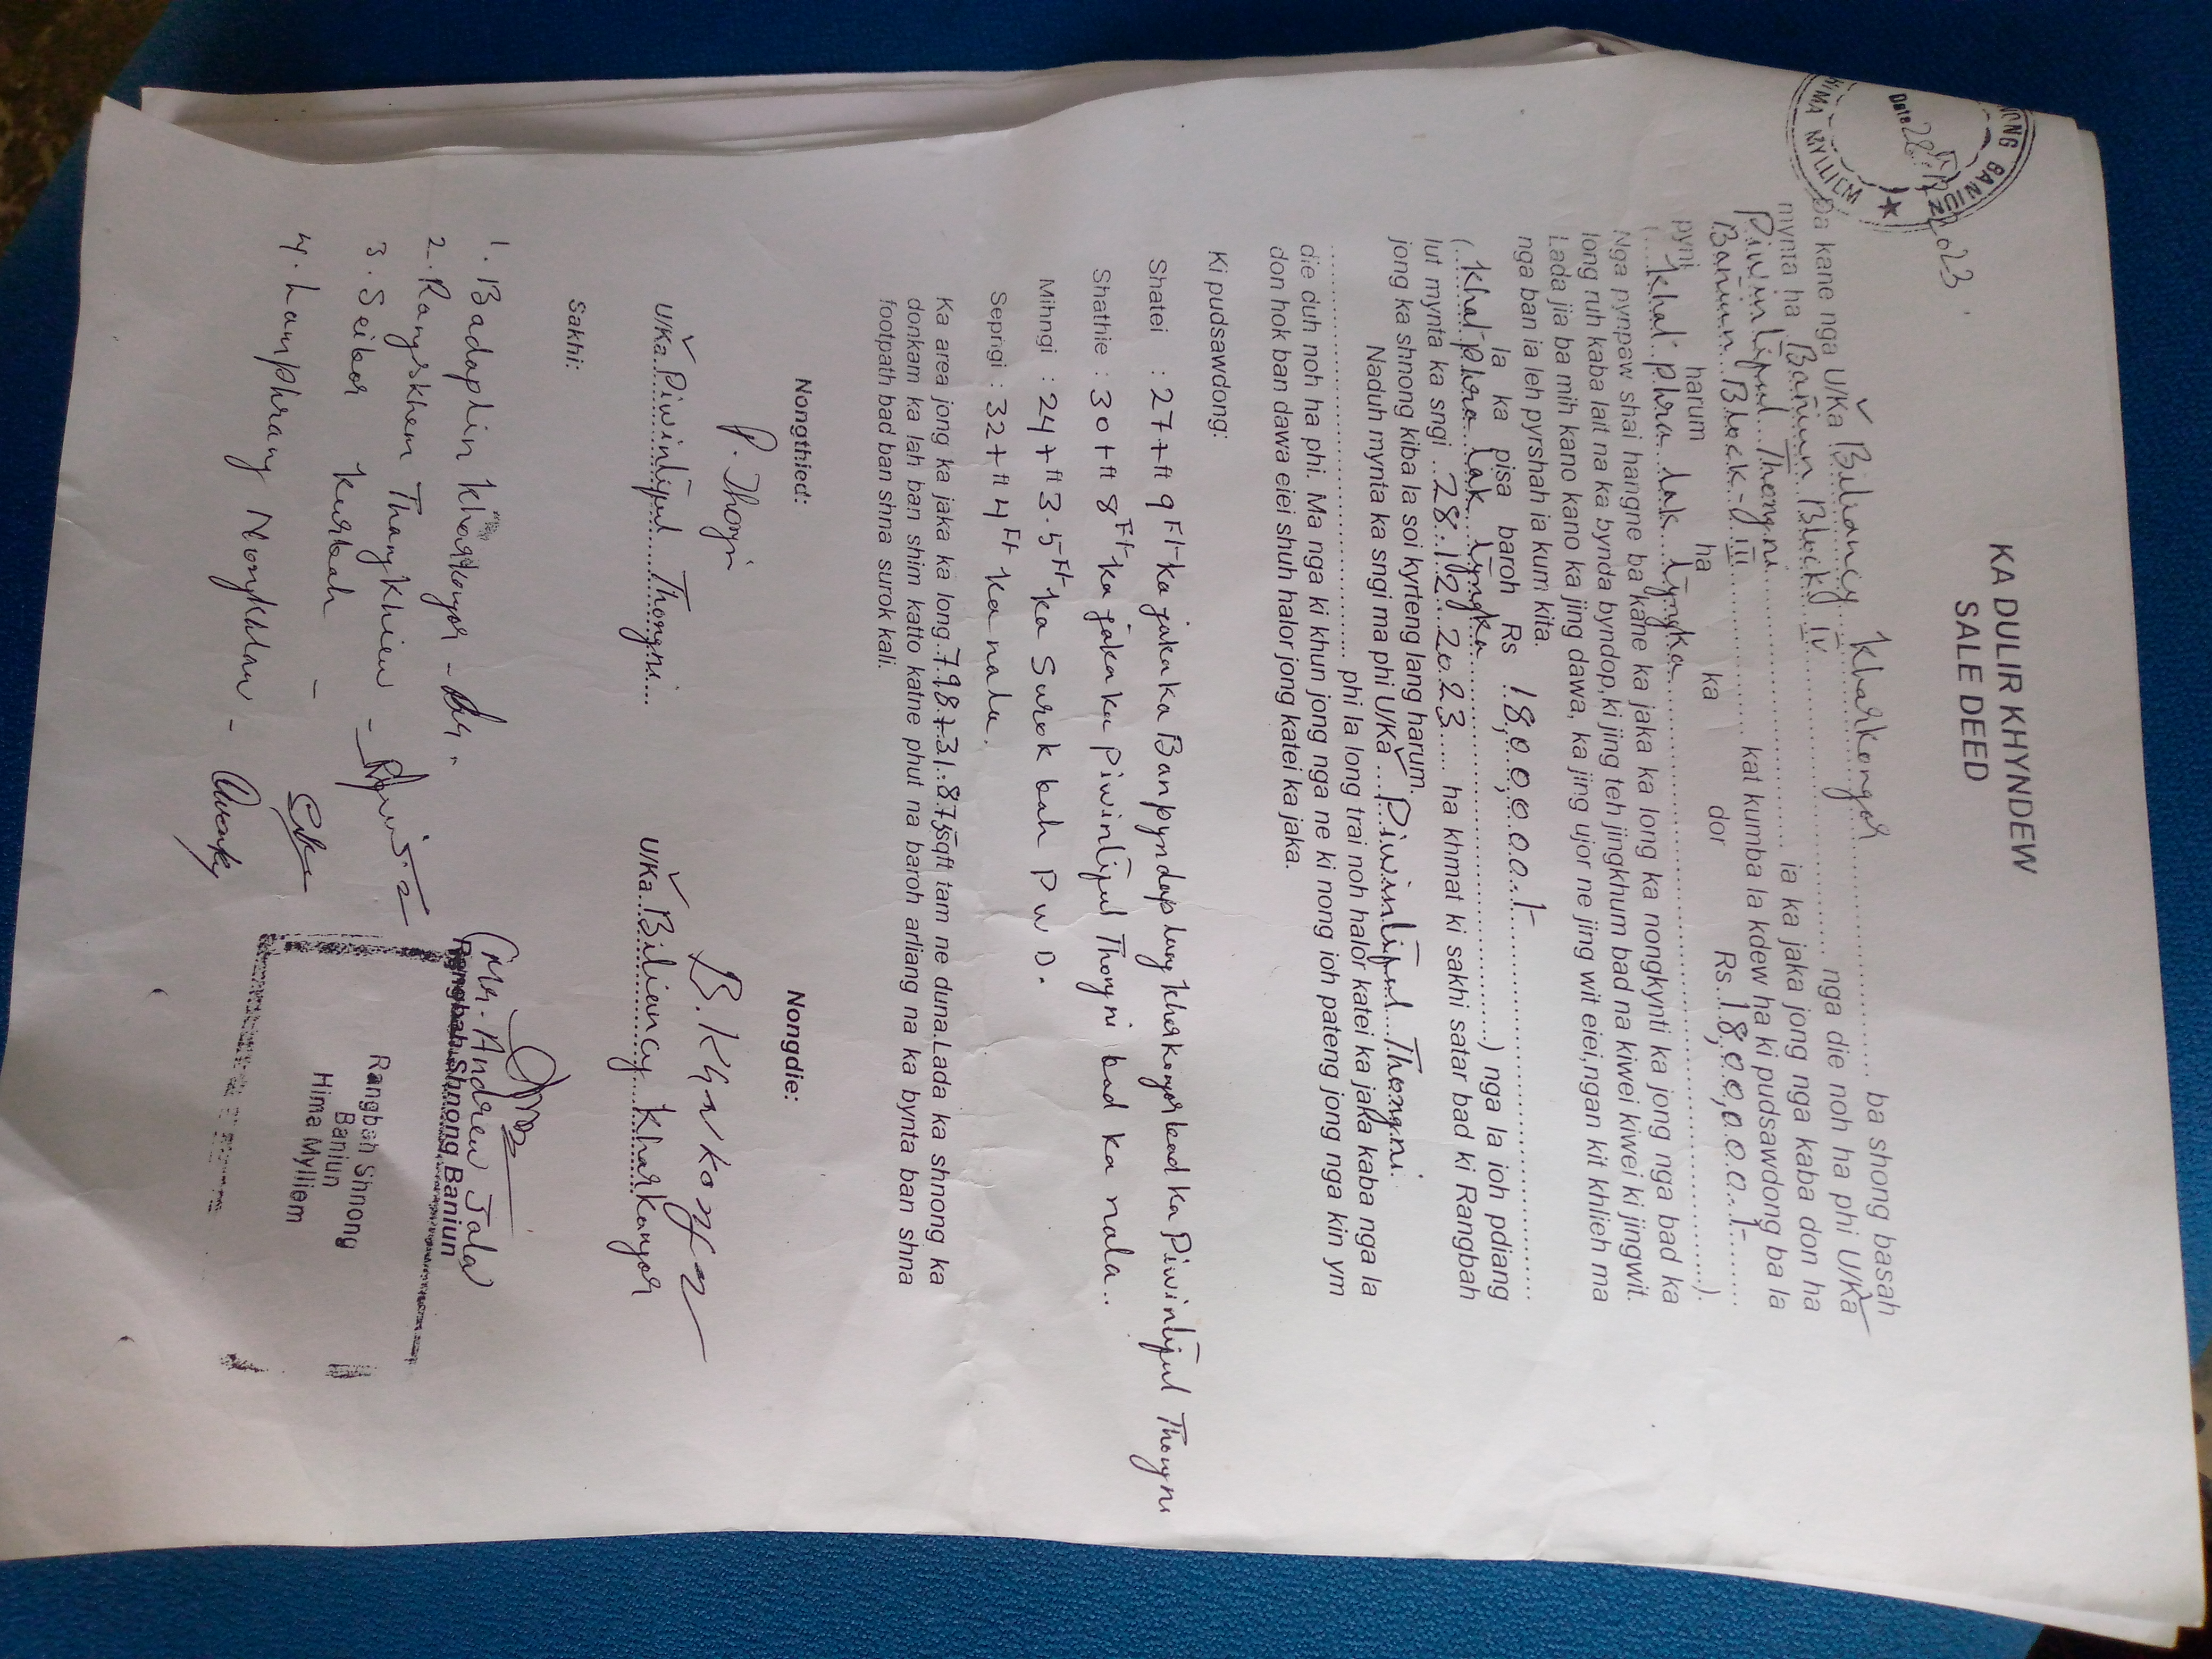 KA DULIR KHYNDEW
SALE DEED
NONG BANIUN
Date 28/12/2023
HIMA MYLLIEM
Da kane nga U/Ka Biliancy Kharkongor ba shong basah
mynta ha Baniun Block IV nga die noh ha phi U/Ka
Piwinlijul Thongni ia ka jaka jong nga kaba don ha
Baniun Block - III kat kumba la kdew ha ki pudsawdong ba la
pyni harum ha ka dor Rs 18,00,000/-
(Khat phra lak tyngka).
Nga pynpaw shai hangne ba kane ka jaka ka long ka nongkynti ka jong nga bad ka
long ruh kaba lait na ka bynda byndop,ki jing teh jingkhum bad na kiwei kiwei ki jingwit.
Lada jia ba mih kano kano ka jing dawa, ka jing ujor ne jing wit eiei,ngan kit khlieh ma
nga ban ia leh pyrshah ia kum kita.
la ka pisa baroh Rs 18,00,000/-
(Khat phra lak tyngka) nga la ioh pdiang
lut mynta ka sngi 28.12.2023 ha khmat ki sakhi satar bad ki Rangbah
jong ka shnong kiba la soi kyrteng lang harum.
Naduh mynta ka sngi ma phi U/Ka Piwinlijul Thongni
phi la long trai noh halor katei ka jaka kaba nga la
die duh noh ha phi. Ma nga ki khun jong nga ne ki nong ioh pateng jong nga kin ym
don hok ban dawa eiei shuh halor jong katei ka jaka.
Ki pudsawdong:
Shatei : 27+ft 9Ft ka jaka ka Banpyndaplang kharkongor bad ka Piwinlijul Thongni
Shathie : 30+ft 8Ft ka jaka ka Piwinlijul Thongni bad ka nala..
Mihngi : 24+ft 3.5Ft ka Surok bah PWD.
Sepngi : 32+ft 4Ft ka nala.
Ka area jong ka jaka ka long 798.+31.875sqft tam ne duna.Lada ka shnong ka
donkam ka lah ban shim katto katne phut na baroh arliang na ka bynta ban shna
footpath bad ban shna surok kali.
Nongthied:
Nongdie:
P. Thongni
B. Kharkongor
U/Ka Piwinlijul Thongni
U/Ka Biliancy Kharkongor
Sakhi:
1. Badaplin kharkongor -
2. Rangskhem Thangkhiew -
3. Seibor kurbah -
4. Lamphrang Nongkhlaw -
(Mr. Andrew Jala
Rangbah Shnong Baniun
Rangbah Shnong
Baniun
Hima Mylliem